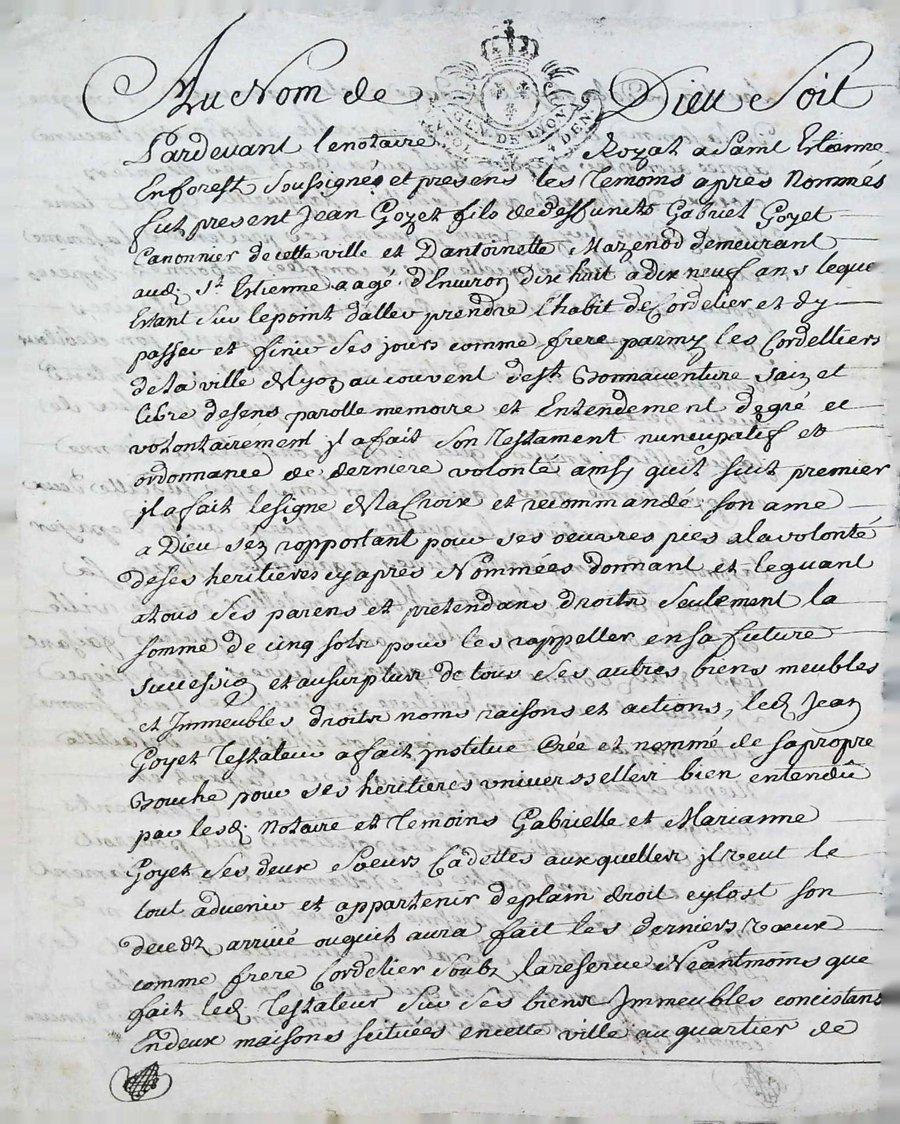 Au Nom de Dieu Soit
GEN. DE LYON
Pardevant le notaire Royal a Saint Estienne
En forest Soussigné et presens les Temoins apres Nommés
fut present Jean Goyet fils de deffuncts Gabriel Goyet
Canonnier de cette ville et Dantoinette Mazenod demeurant
aud. St. Estienne aagé d'Environ dix huit a dix neuf ans leque
Estant Sur le point daller prendre l'habit de Cordelier et dy
passer et finir Ses jours comme frere parmy les Cordelliers
de la ville de Lyon au couvent de St. Bonnaventure, Sain et
libre de sens, parolle memoire et Entendement de gré et
volontairement yl a fait Son Testament nuncupatif et
ordonnance de derniere volonté ainsy quil Suit premier
yl a fait le signe de la Croix et recommandé son ame
a Dieu sen rapportant pour ses oeuvres pies a la volonté
de ses heritieres cy apres Nommées donnant et leguant
a tous Ses parens et pretendans droits Seulement la
somme de cinq sols pour les rappeller en sa future
succession et au surplus de tous Ses autres biens meubles
et Immeubles droits noms raisons et actions, led. Jean
Goyet Testateur a fait ynstitue Crée et nommé de sa propre
Bouche pour ses heritieres universselles bien entendû
par lesd. Notaire et Temoins Gabrielle et Marianne
Goyet Ses deux Soeurs Cadettes aux quelles yl veut le
tout advenir et appartenir de plain droit cy tost son
decedz arrivé ou quil aura fait les derniers voeux
comme frere Cordelier Soubz la reserve Neantmoins que
fait led. Testateur Sur Ses biens Immeubles concistans
En deux maisons scituées en cette ville au quartier de